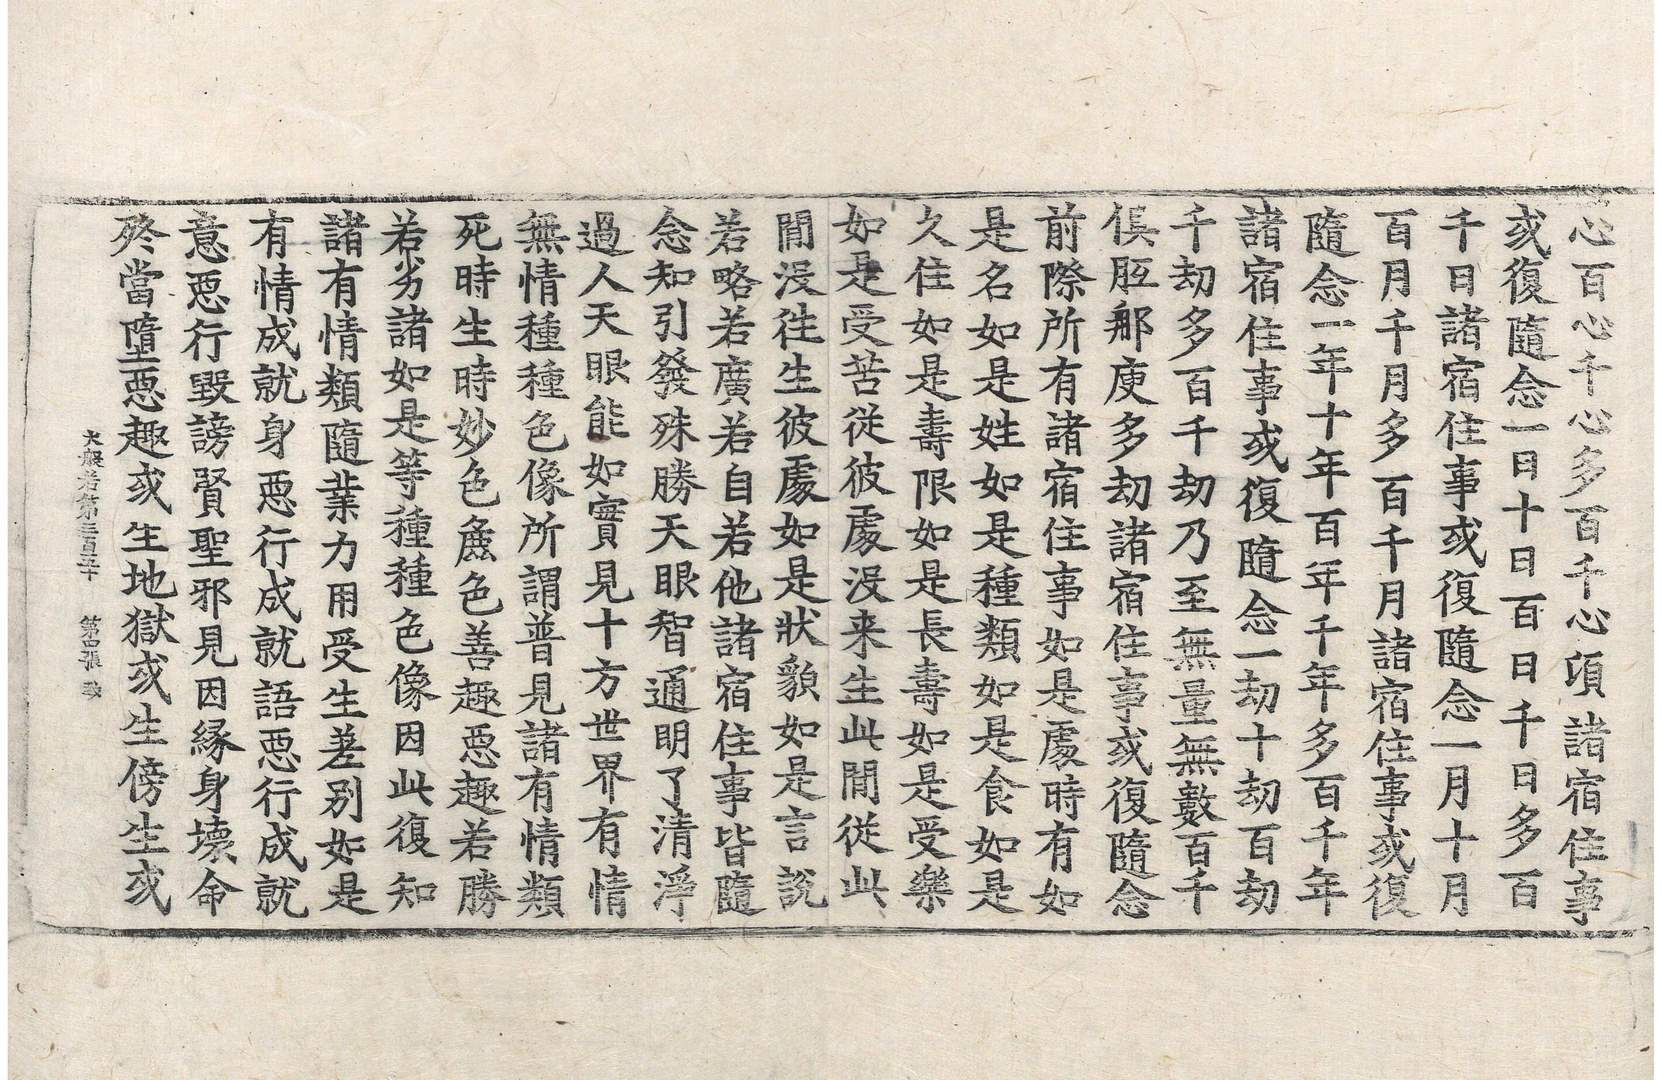 心百心千心多百千心頃諸宿住事
或復隨念一日十日百日千日多百
千日諸宿住事或復隨念一月十月
百月千月多百千月諸宿住事或復
隨念一年十年百年千年多百千年
諸宿住事或復隨念一劫十劫百劫
千劫多百千劫乃至無量無數百千
俱胝那庾多劫諸宿住事或復隨念
前際所有諸宿住事如是處時有如
是名如是姓如是種類如是食如是
久住如是壽限如是長壽如是受樂
如是受苦從彼處沒来生此間從此
間沒往生彼處如是狀貌如是言說
若略若廣若自若他諸宿住事皆隨
念知引發殊勝天眼智通明了清淨
過人天眼能如實見十方世界有情
無情種種色像所謂普見諸有情類
死時生時妙色麁色善趣惡趣若勝
若劣諸如是等種種色像因此復知
諸有情類隨業力用受生差別如是
有情成就身惡行成就語惡行成就
意惡行毀謗賢聖邪見因緣身壞命
終當墮惡趣或生地獄或生傍生或
大般若第三百五十 第四張